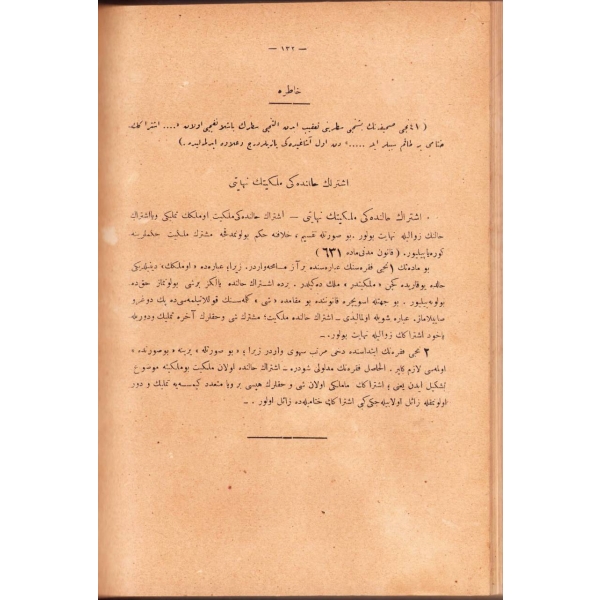 — ١٣٢ —
خاطره
( ٤١ نجی صحیفه‌نك بشنجی سطرینی تعقیب ایدن التنجی سطرك باشلانغیجی اولان « .... اشتراكك
ختامی بر طاقم سببلر ایله ..... » دن اول آشاغیده‌کی یازیلر درج و علاوه ایدلملیدر . )
اشتراك حالنده‌کی ملکیتك نهایتی
٠ اشتراك حالنده‌کی ملکیتك نهایتی — اشتراك حالنده‌کی ملکیت اوملكك تملیکی ویا اشتراك
حالنك زوالیله نهایت بولور . بو صورتله تقسیم ، خلافنه حکم بولونمدقجه مشترك ملکیت حکملرینه
کوره یاپیلیور . ( قانون مدنی ماده ٦٣١ )
بو ماده‌نك ١ نجی فقره‌سنك عباره‌سنده بر آز مسامحه واردر . زیرا ؛ عباره‌ده « اوملكك » دینیلدیکی
حالده یوقاریده کچن « ملکیت » ملك ده‌کیلدر . برده اشتراك حالنده یالکز برشی بولونماز حق ده
بولونه‌بیلیور . بو جهتله اسویچره قانوننده بو مقامده « شی » کلمه‌سنك قوللانیلمه‌سی ده پك دوغرو
صاییلاماز . عباره شویله اولمالیدی ــ اشتراك حالنده ملکیت ؛ مشترك شی وحقلرك آخره تملیك ودوریله
یاخود اشتراكك زوالیله نهایت بولور .
٢ نجی فقره‌نك ابتداسنده دخی مرتب سهوی واردر زیرا « بو صورتله » یرینه « بوصورتده »
اولمه‌سی لازم کلیر . الحاصل فقره‌نك مدلولی شودر ــ اشتراك حالنده اولان ملکیت بوملکیته موضوع
تشکیل ایدن یعنی اشتراكك ماملکی اولان شی و حقلرك هپسی بر ویا متعدد کیمسه‌یه تملیك و دور
اولونمقله زائل اولابیله‌جکی کبی اشتراكك ختامیله‌ده زائل اولور . ــ